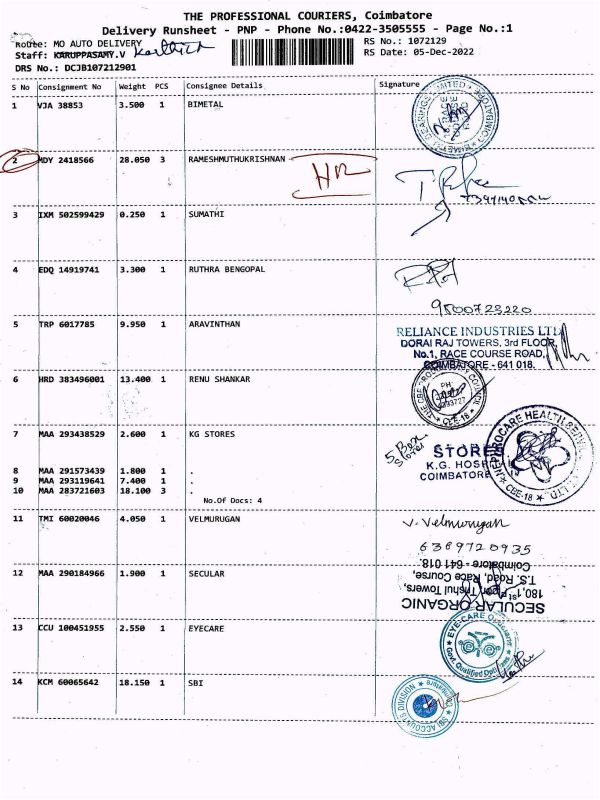 THE PROFESSIONAL COURIERS, Coimbatore
Delivery Runsheet - PNP - Phone No.:0422-3505555 - Page No.:1
Route: MO AUTO DELIVERY
RS No.: 1072129
Staff: KARUPPASAMY.V Karthick
RS Date: 05-Dec-2022
DRS No.: DCJB107212901
S No Consignment No Weight PCS Consignee Details Signature
1 VJA 38853 3.500 1 BIMETAL
BIMETAL BEARINGS LIMITED COIMBATORE
2 MDY 2418566 28.050 3 RAMESHMUTHUKRISHNAN
HR
3 IXM 502599429 0.250 1 SUMATHI
4 EDQ 14919741 3.300 1 RUTHRA BENGOPAL
9500723220
5 TRP 6017785 9.950 1 ARAVINTHAN
RELIANCE INDUSTRIES LTD
DORAI RAJ TOWERS, 3rd FLOOR,
No.1, RACE COURSE ROAD,
COIMBATORE - 641 018.
6 HRD 383496001 13.400 1 RENU SHANKAR
PH:
CBE-18
7 MAA 293438529 2.600 1 KG STORES
5 Box
STORES
K.G. HOSPITAL
COIMBATORE
NEPHROCARE HEALTH SERVICES PVT. LTD.
CBE-18
8 MAA 291573439 1.800 1 .
9 MAA 293119641 7.400 1 .
10 MAA 283721603 18.100 3 .
No.Of Docs: 4
11 TMI 60020046 4.050 1 VELMURUGAN
V. Velmurugan
6369720935
12 MAA 290184966 1.900 1 SECULAR
SECULAR ORGANIC
180, 1st Floor, Trishul Towers,
T.S. Road, Race Course,
Coimbatore - 641 018.
13 CCU 100451955 2.550 1 EYECARE
EYE-CARE OPTICIANS
Govt. Qualified Opticians
14 KCM 60065642 18.150 1 SBI
SBI ACCOUNTS DIVISION